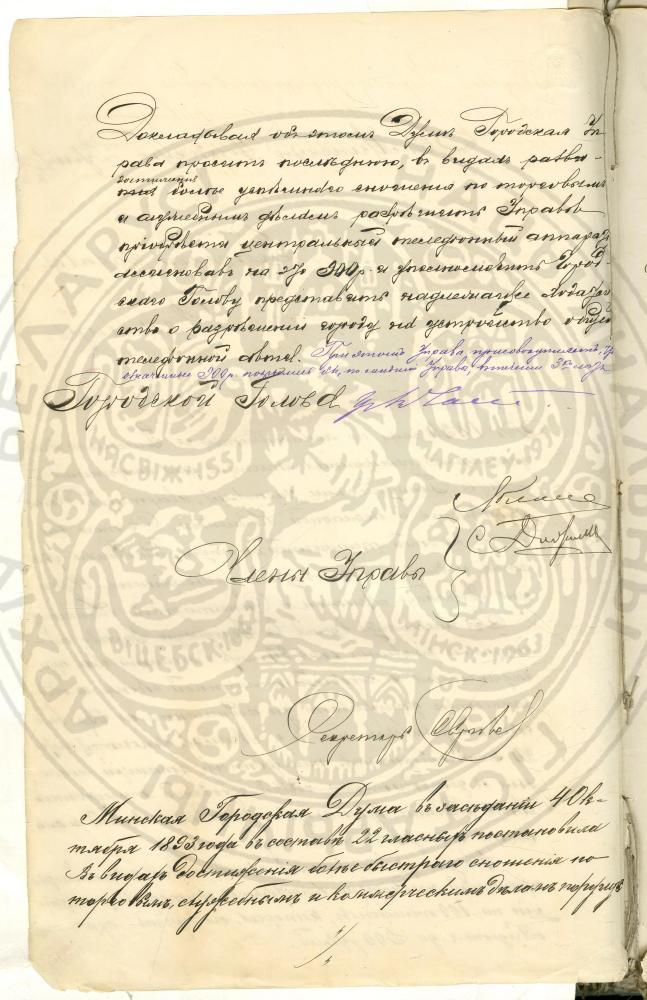 Докладывая объ этомъ Думѣ Городская Уп-
рава проситъ послѣднюю, въ видахъ
достиженія
болѣе успѣшнаго сношенія по торговымъ
и служебнымъ дѣламъ разрѣшить Управѣ
пріобрѣсти центральный телефонный аппаратъ
ассигновавъ на это 900 р. и уполномочить Город-
скаго Голову представить надлежащее ходатай-
ство о разрѣшеніи городу на устройство общей
телефонной сѣти. При этомъ Управа присовокупляетъ,
900 р. по смѣтѣ Управы въ теченіи 3хъ лѣтъ
Городской Голова
Члены Управы
Секретарь
Минская Городская Дума въ засѣданіи 4 Ок-
тября 1893 года въ составѣ 22 гласныхъ постановила
въ видахъ достиженія болѣе быстраго сношенія по
торговымъ, служебнымъ и коммерческимъ дѣламъ
НЯСВІЖ·1551
МАГІЛЁЎ
ВІЦЕБСК
МІНСК·1963